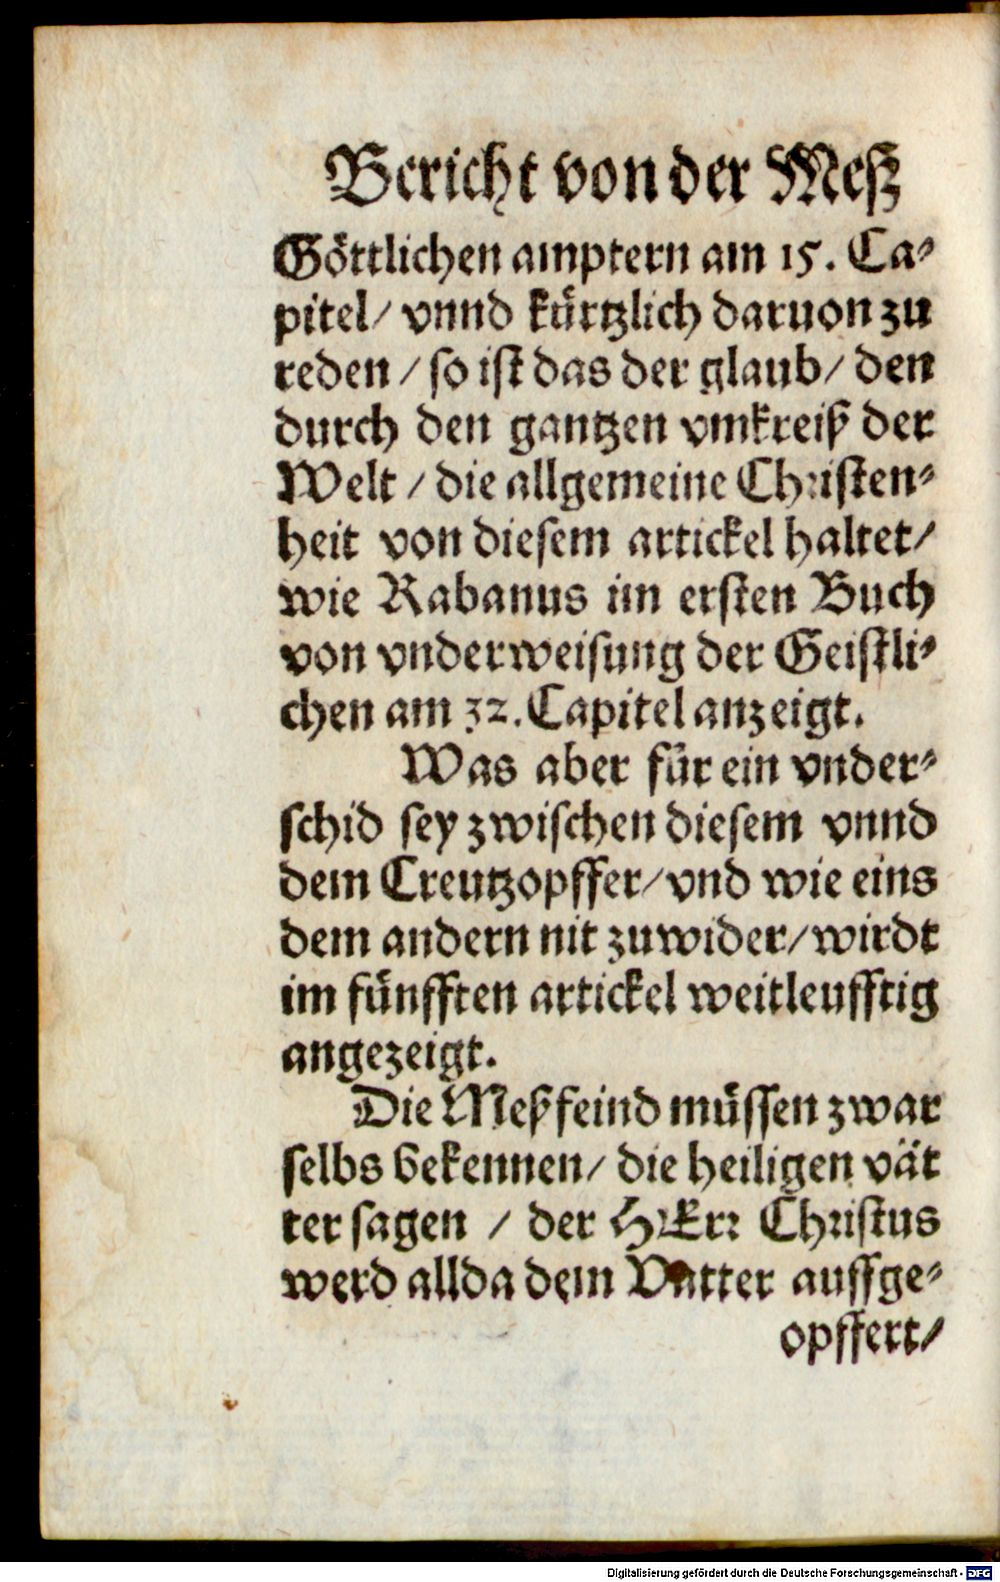 Bericht von der Meß
Göttlichen amptern am 15. Ca-
pitel/ vnnd kürtzlich daruon zu
reden / so ist das der glaub/ den
durch den gantzen vmkreiß der
Welt / die allgemeine Christen-
heit von diesem artickel haltet/
wie Rabanus im ersten Buch
von vnderweisung der Geistli-
chen am 32. Capitel anzeigt.
Was aber für ein vnder-
schid sey zwischen diesem vnnd
dem Creutzopffer/ vnd wie eins
dem andern nit zuwider/ wirdt
im fünfften artickel weitleufftig
angezeigt.
Die Meßfeind müssen zwar
selbs bekennen/ die heiligen vät
ter sagen / der HErr Christus
werd allda dem Vatter auffge-
opffert/
Digitalisierung gefördert durch die Deutsche Forschungsgemeinschaft - DFG